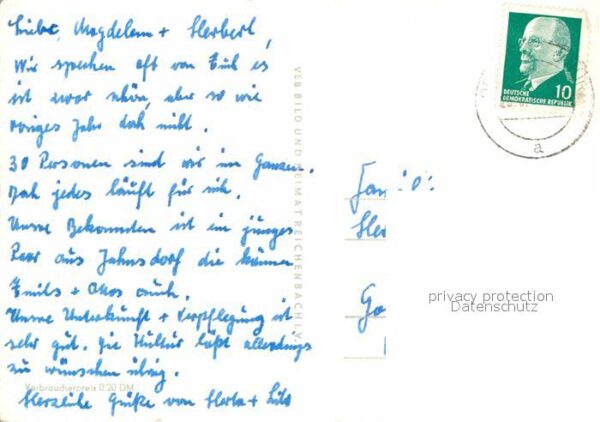 Liebe, Magdelena + Herbert,
Wir sprechen oft von Euch es
ist zwar schön, aber so wie
voriges Jahr doch nicht.
30 Personen sind wir im Ganzen.
Doch jedes läuft für sich.
Unsre Bekannten ist ein junges
Paar aus Jahnsdorf die kennen
Emils + Ottos auch.
Unsre Unterkunft + Verpflegung ist
sehr gut. Die Kultur läßt allerdings
zu wünschen übrig.
Herzliche Grüße von Herta +
Verbraucherpreis 0,20 DM
VEB BILD UND HEIMAT REICHENBACH I.V.
10
DEUTSCHE
DEMOKRATISCHE REPUBLIK
a
Fam
Her
privacy protection
Datenschutz